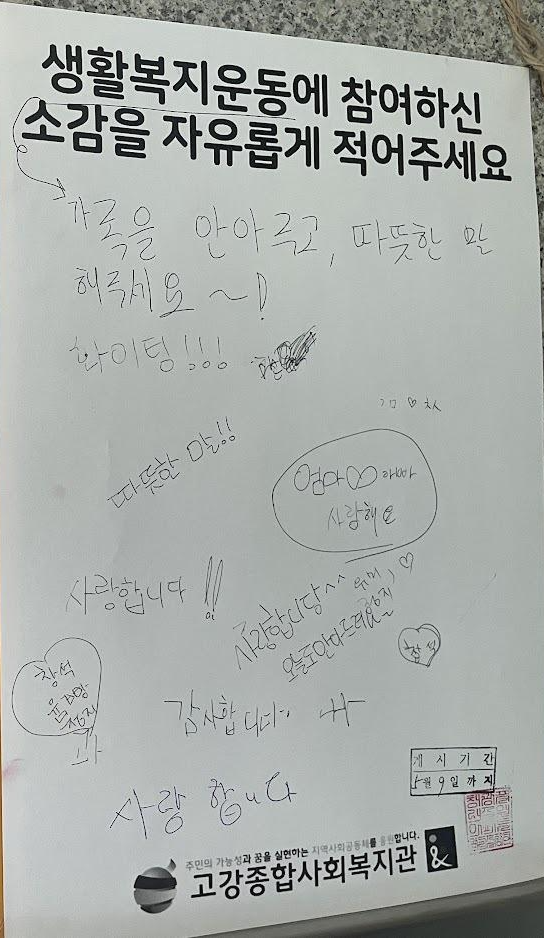 생활복지운동에 참여하신
소감을 자유롭게 적어주세요
가족을 안아주고, 따뜻한 말
해주세요~!
화이팅!!!
따뜻한 말!!
엄마 아빠
사랑해요
사랑합니다!!!
사랑합니당^^
감사합니다.
창석
사랑합니다
게시기간
5월9일까지
주민의 가능성과 꿈을 실현하는 지역사회공동체를 응원합니다.
고강종합사회복지관